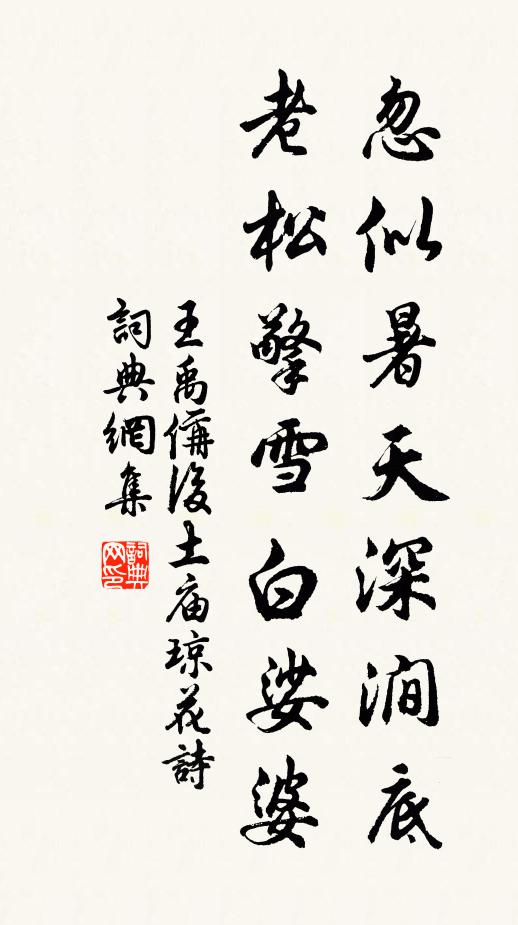 忽似暑天深澗底
老松擎雪白娑婆
王禹偁後土庙琼花詩
詞典網集
詞典网印